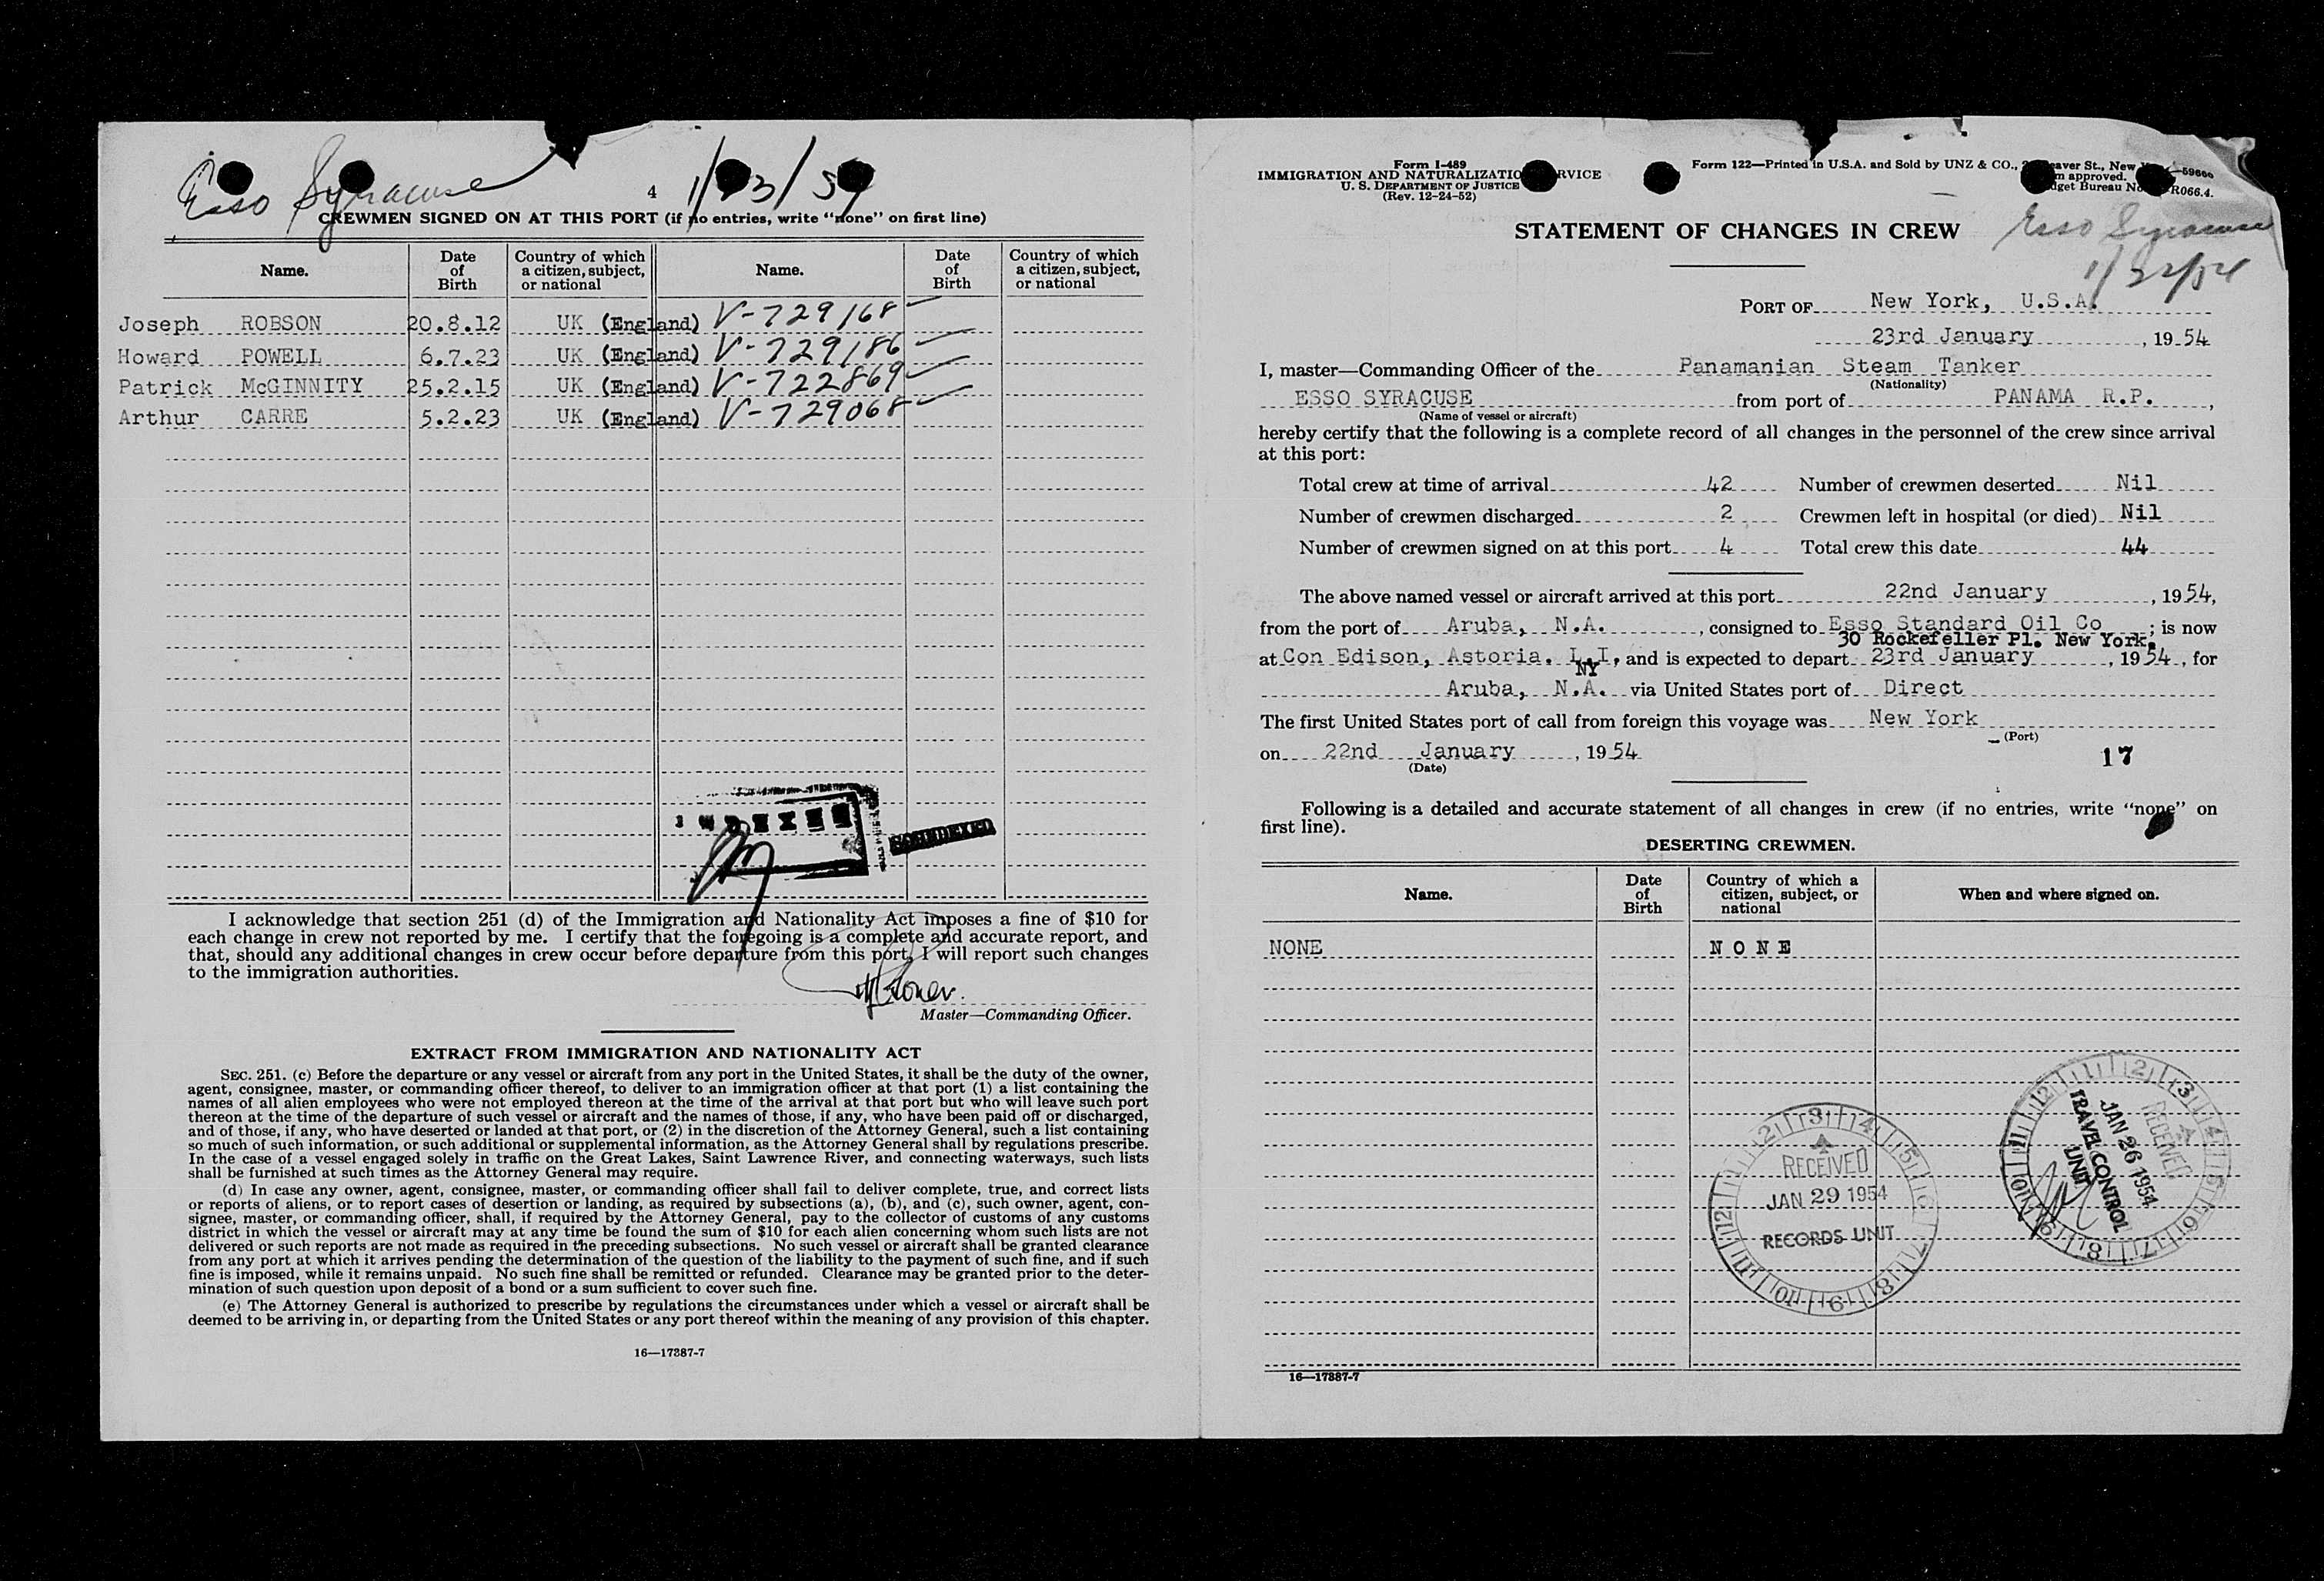 Esso Syracuse
4
CREWMEN SIGNED ON AT THIS PORT (if no entries, write “none” on first line)
Name. Date of Birth Country of which a citizen, subject, or national Name. Date of Birth Country of which a citizen, subject, or national
Joseph ROBSON 20.8.12 UK (England) V-729168
Howard POWELL 6.7.23 UK (England) V-729186
Patrick McGINNITY 25.2.15 UK (England) V-722869
Arthur CARRE 5.2.23 UK (England) V-729068
INDEXED
I acknowledge that section 251 (d) of the Immigration and Nationality Act imposes a fine of $10 for
each change in crew not reported by me. I certify that the foregoing is a complete and accurate report, and
that, should any additional changes in crew occur before departure from this port, I will report such changes
to the immigration authorities.
Master—Commanding Officer.
EXTRACT FROM IMMIGRATION AND NATIONALITY ACT
SEC. 251. (c) Before the departure or any vessel or aircraft from any port in the United States, it shall be the duty of the owner,
agent, consignee, master, or commanding officer thereof, to deliver to an immigration officer at that port (1) a list containing the
names of all alien employees who were not employed thereon at the time of the arrival at that port but who will leave such port
thereon at the time of the departure of such vessel or aircraft and the names of those, if any, who have been paid off or discharged,
and of those, if any, who have deserted or landed at that port, or (2) in the discretion of the Attorney General, such a list containing
so much of such information, or such additional or supplemental information, as the Attorney General shall by regulations prescribe.
In the case of a vessel engaged solely in traffic on the Great Lakes, Saint Lawrence River, and connecting waterways, such lists
shall be furnished at such times as the Attorney General may require.
(d) In case any owner, agent, consignee, master, or commanding officer shall fail to deliver complete, true, and correct lists
or reports of aliens, or to report cases of desertion or landing, as required by subsections (a), (b), and (c), such owner, agent, con-
signee, master, or commanding officer, shall, if required by the Attorney General, pay to the collector of customs of any customs
district in which the vessel or aircraft may at any time be found the sum of $10 for each alien concerning whom such lists are not
delivered or such reports are not made as required in the preceding subsections. No such vessel or aircraft shall be granted clearance
from any port at which it arrives pending the determination of the question of the liability to the payment of such fine, and if such
fine is imposed, while it remains unpaid. No such fine shall be remitted or refunded. Clearance may be granted prior to the deter-
mination of such question upon deposit of a bond or a sum sufficient to cover such fine.
(e) The Attorney General is authorized to prescribe by regulations the circumstances under which a vessel or aircraft shall be
deemed to be arriving in, or departing from the United States or any port thereof within the meaning of any provision of this chapter.
16—17387-7
Form I-489
IMMIGRATION AND NATURALIZATIO RVICE
U. S. DEPARTMENT OF JUSTICE
(Rev. 12-24-52)
Form 122—Printed in U.S.A. and Sold by UNZ & CO., eaver St., New
m approved.
dget Bureau No R066.4.
STATEMENT OF CHANGES IN CREW
Esso Syracuse
1/22/54
PORT OF New York, U.S.A.
23rd January, 1954
I, master—Commanding Officer of the Panamanian Steam Tanker
(Nationality)
ESSO SYRACUSE from port of PANAMA R.P.,
(Name of vessel or aircraft)
hereby certify that the following is a complete record of all changes in the personnel of the crew since arrival
at this port:
Total crew at time of arrival 42 Number of crewmen deserted Nil
Number of crewmen discharged 2 Crewmen left in hospital (or died) Nil
Number of crewmen signed on at this port 4 Total crew this date 44
The above named vessel or aircraft arrived at this port 22nd January, 1954,
from the port of Aruba, N.A., consigned to Esso Standard Oil Co; is now
30 Rockefeller Pl. New York.
at Con Edison, Astoria. L.I, and is expected to depart 23rd January, 1954, for
NY
Aruba, N.A. via United States port of Direct
The first United States port of call from foreign this voyage was New York
(Port)
on 22nd January, 1954
(Date)
17
Following is a detailed and accurate statement of all changes in crew (if no entries, write “none” on
first line).
DESERTING CREWMEN.
Name. Date of Birth Country of which a citizen, subject, or national When and where signed on.
NONE NONE
RECEIVED
JAN 29 1954
RECORDS UNIT
RECEIVED
JAN 26 1954
TRAVEL CONTROL
UNIT
16—17387-7